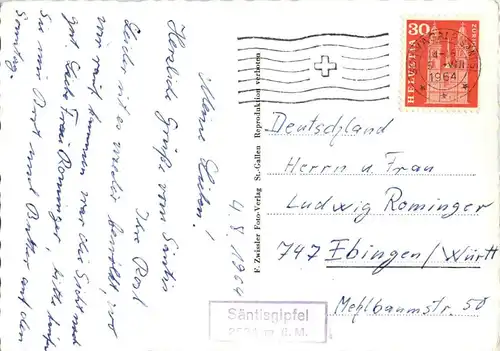 Meine Lieben!
4.8.1964
Herzliche Grüße vom Säntis
Ihre Rosl
Leider ist es wieder bewölkt, und
wir
kommen
die Sicht
gut. Liebe Frau Rominger, bitte
Sie mir Brot und Butter auf den
Sonntag.
F. Zwissler Foto-Verlag St. Gallen Reproduktion verboten
30
HELVETIA
1964
Deutschland
Herrn u. Frau
Ludwig Rominger
747 Ebingen/Württ
Mehlbaumstr. 50
Säntisgipfel
2504 m ü. M.